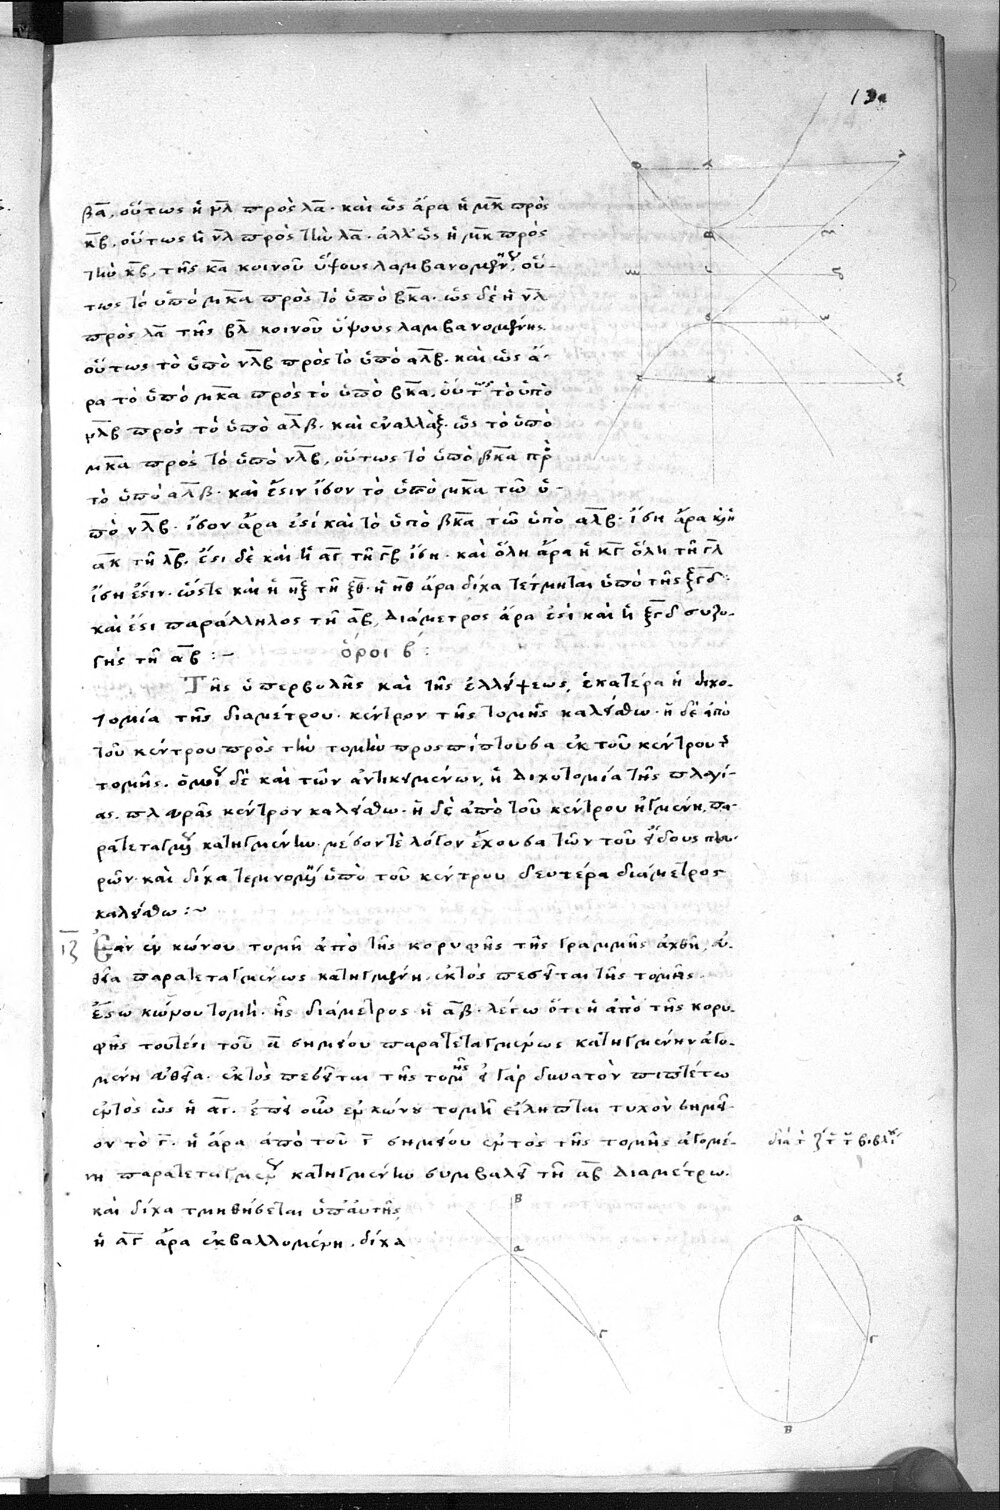 13
βα, οὕτως ἡ νλ πρὸς λα· καὶ ὡς ἄρα ἡ μκ πρὸς
κβ, οὕτως ἡ νλ πρὸς τὴν λα· ἀλλ' ὡς ἡ μκ πρὸς
τὴν κβ, τῆς κα κοινοῦ ὕψους λαμβανομένης, οὕ-
τως τὸ ὑπὸ μκα πρὸς τὸ ὑπὸ βκα· ὡς δὲ ἡ νλ
πρὸς λα τῆς βλ κοινοῦ ὕψους λαμβανομένης
οὕτως τὸ ὑπὸ νλβ πρὸς τὸ ὑπὸ αλβ· καὶ ὡς ἄ-
ρα τὸ ὑπὸ μκα πρὸς τὸ ὑπὸ βκα, οὕτως τὸ ὑπὸ
νλβ πρὸς τὸ ὑπὸ αλβ· καὶ ἐναλλὰξ ὡς τὸ ὑπὸ
μκα πρὸς τὸ ὑπὸ νλβ, οὕτως τὸ ὑπὸ βκα πρὸς
τὸ ὑπὸ αλβ· καὶ ἔστιν ἴσον τὸ ὑπὸ μκα τῶ ὑ-
πὸ νλβ· ἴσον ἄρα ἐστὶ καὶ τὸ ὑπὸ βκα τῶ ὑπὸ αλβ· ἴση ἄρα καὶ ἡ
ακ τῆ λβ. ἔστι δὲ καὶ ἡ αγ τῆ γβ ἴση· καὶ ὅλη ἄρα ἡ κγ ὅλη τῆ γλ
ἴση ἐστίν· ὥστε καὶ ἡ ηξ τῆ ξθ· ἡ ηθ ἄρα δίχα τέτμηται ὑπὸ τῆς ξγδ·
καὶ ἔστι παράλληλος τῆ αβ, διάμετρος ἄρα ἐστὶ καὶ ἡ ξγδ συζυ-
γὴς τῆ αβ :~
ὅροι β :
Τῆς ὑπερβολῆς καὶ τῆς ἐλλείψεως, ἑκατέρα ἡ διχο-
τομία τῆς διαμέτρου· κέντρον τῆς τομῆς καλείσθω· ἡ δὲ ἀπὸ
τοῦ κέντρου πρὸς τὴν τομὴν προσπίπτουσα ἐκ τοῦ κέντρου τῆς
τομῆς. ὁμοίως δὲ καὶ τῶν ἀντικειμένων, ἡ διχοτομία τῆς πλαγί-
ας πλευρᾶς κέντρον καλείσθω· ἡ δὲ ἀπὸ τοῦ κέντρου ἠγμένη, πα-
ρατεταγμένως κατηγμένην· μέσον τε λόγον ἔχουσα τῶν τοῦ εἴδους πλευ-
ρῶν· καὶ δίχα τεμνομένη ὑπὸ τοῦ κέντρου δευτέρα διάμετρος
καλείσθω :~
ιζ Ἐὰν ἐν κώνου τομῆ ἀπὸ τῆς κορυφῆς τῆς γραμμῆς ἀχθῆ, εὐ-
θεῖα παρατεταγμένως κατηγμένη, ἐκτὸς πεσεῖται τῆς τομῆς.
ἔστω κώνου τομὴ· ἧς διάμετρος ἡ αβ· λέγω ὅτι ἡ ἀπὸ τῆς κορυ-
φῆς τουτέστι τοῦ α σημείου παρατεταγμένως κατηγμένην ἀγο-
μένη εὐθεῖα. ἐκτὸς πεσεῖται τῆς τομῆς εἰ γὰρ δυνατὸν πιπτέτω
ἐντὸς ὡς ἡ αγ. ἐπεὶ οὖν ἐν κώνου τομῆ εἴληπται τυχὸν σημεῖ-
ον τὸ γ. ἡ ἄρα ἀπὸ τοῦ γ σημείου ἐντὸς τῆς τομῆς ἀγομέ-
νη παρατεταγμένως κατηγμένην συμβαλεῖ τῆ αβ διαμέτρω.
καὶ δίχα τμηθήσεται ὑπ' αὐτῆς,
ἡ αγ ἄρα ἐκβαλλομένη. δίχα
Β
α
γ
α
γ
Β